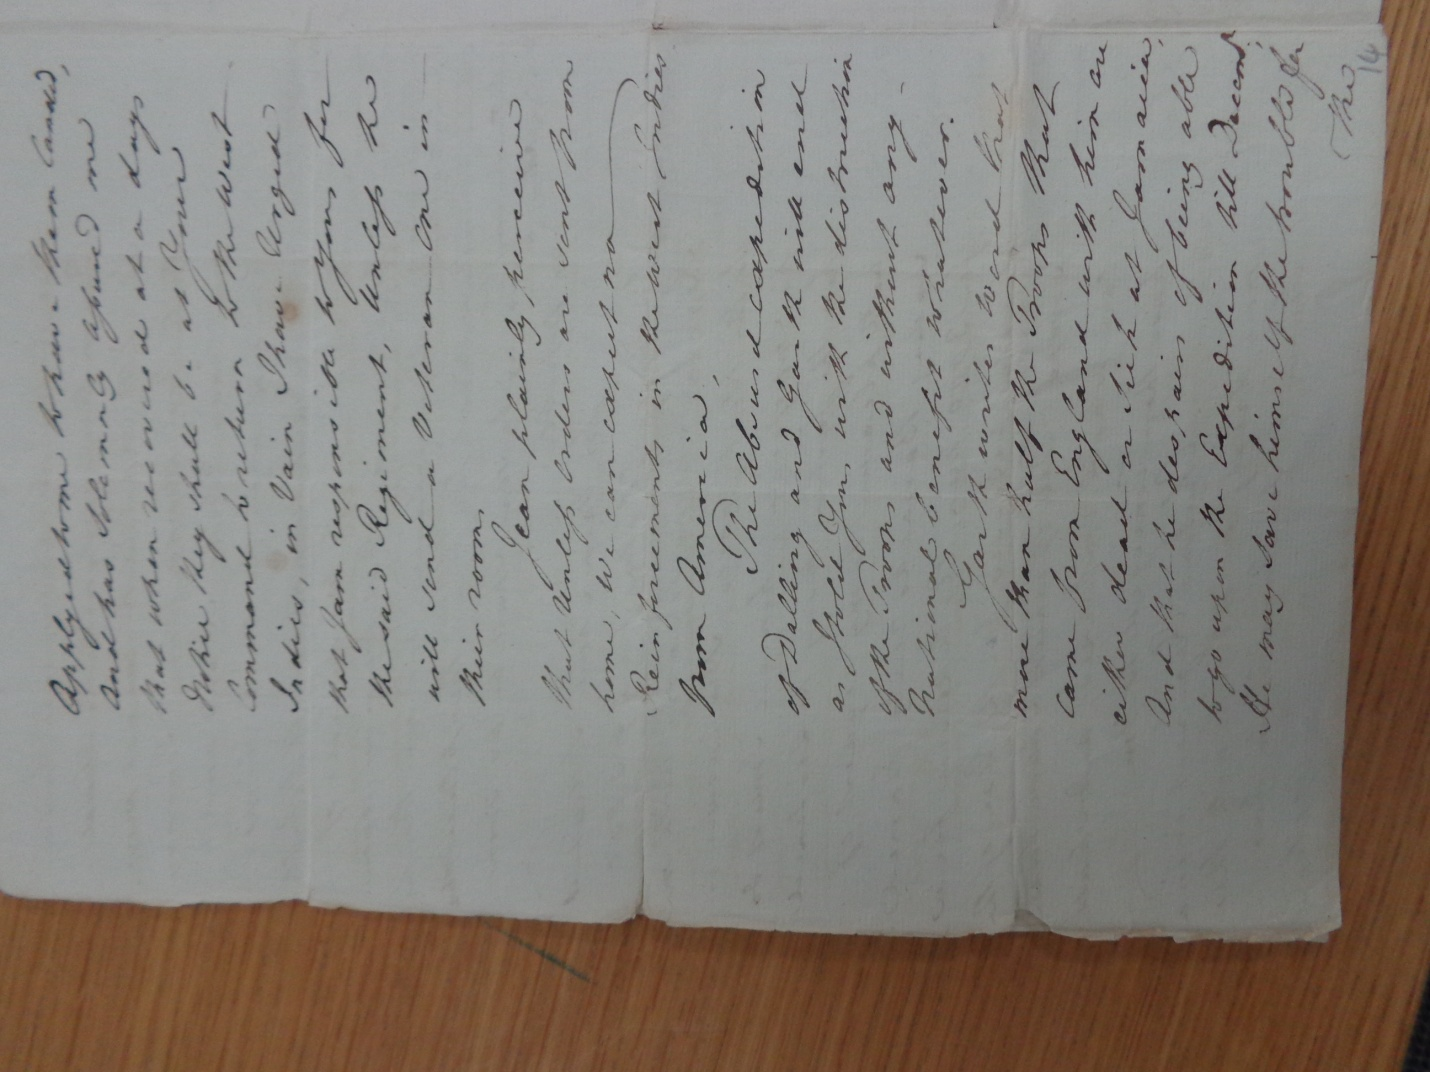 Applyed home to have them Canad,
And has Solemnly assured me
that when recovered at a days
Notice they shall be at Your
Command to return to the West
Indies, in Vain I have Urged
that I am responsible to You for
the said Regiment, Unless he
will send a Veteran One in
their room,
I can plainly perceive
that Unless Orders are sent from
home, We can expect no
Reinforcements in the West Indies
from America,
The Absurd expedition
of Dalling and Garth will end
as I told You, with the distruction
of the Troops and without any
National benefit whatever.
Garth writes word that
more than half the Troops that
came from England with him are
either dead or Sick at Jamaica,
And that he despairs of being able
to go upon the Expedition till Decemr,
He may save himself the trouble for
the
14